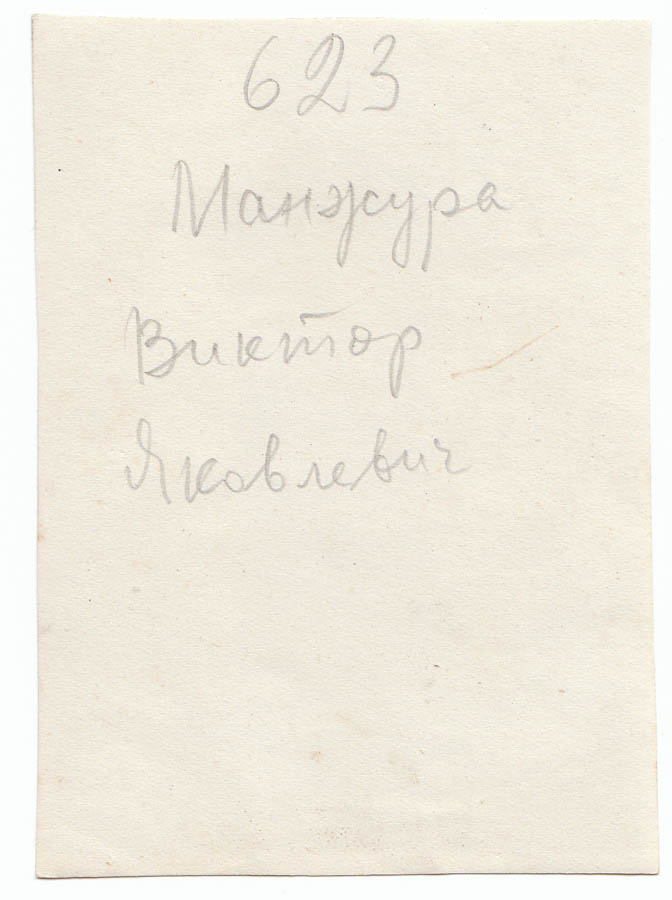 623
Манжура
Виктор
Яковлевич